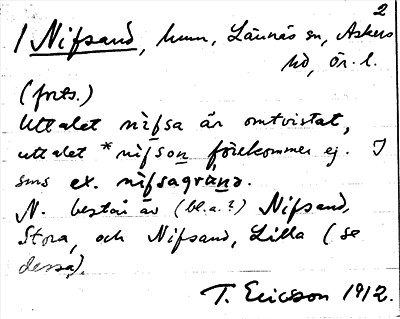 2
1 Nifsand, hmn, Lännäs sn, Askers
hd, ör. l.
(forts.)
Uttalet nifsa är omtvistat,
uttalet *nifson förekommer ej. I
sms ex. nifsagränd.
N. består av (bl.a.?) Nifsand,
Stora, och Nifsand, Lilla (se
dessa).
T. Ericsson 1912.